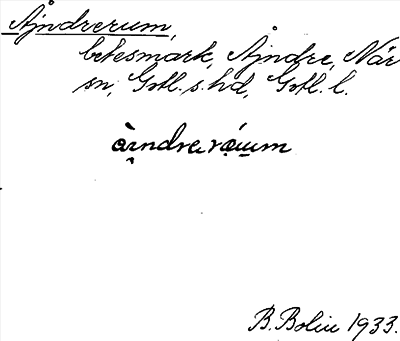 Ajndrerum,
betesmark, Ajndre, När
sn, Gotl. s. hd, Gotl. l.
B. Bolin 1933.